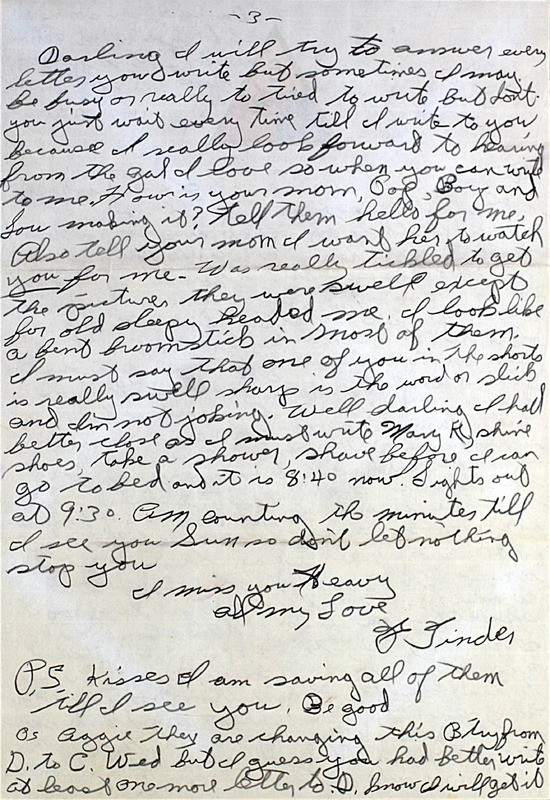 -3-
Darling I will try to answer every
letter you write but sometimes I may
be busy or really to tried to write but dont
you just wait every time till I write to you
because I really look forward to hearing
from the gal I love so when you can write
to me. How is your mom, Pop, Boy and
Lou making it? Tell them hello for me.
Also tell your mom I want her to watch
you for me. Was really tickled to get
the pictures they were swell except
for old sleepy headed me. I look like
a bent broomstick in most of them.
I must say that one of you in the shorts
is really swell sharp is the word or slick
and I'm not joking. Well darling I had
better close as I must write Mary K, shine
shoes, take a shower, shave before I can
go to bed and it is 8:40 now. Lights out
at 9:30. Am counting the minutes till
I see you Sun so don't let nothing
stop you
I miss you Heavy
all my Love
Tinder
P.S. Kisses I am saving all of them
till I see you. Be good
Aggie they are changing this Btry from
D. to C. Wed but I guess you had better write
at least one more letter to D. know I will get it